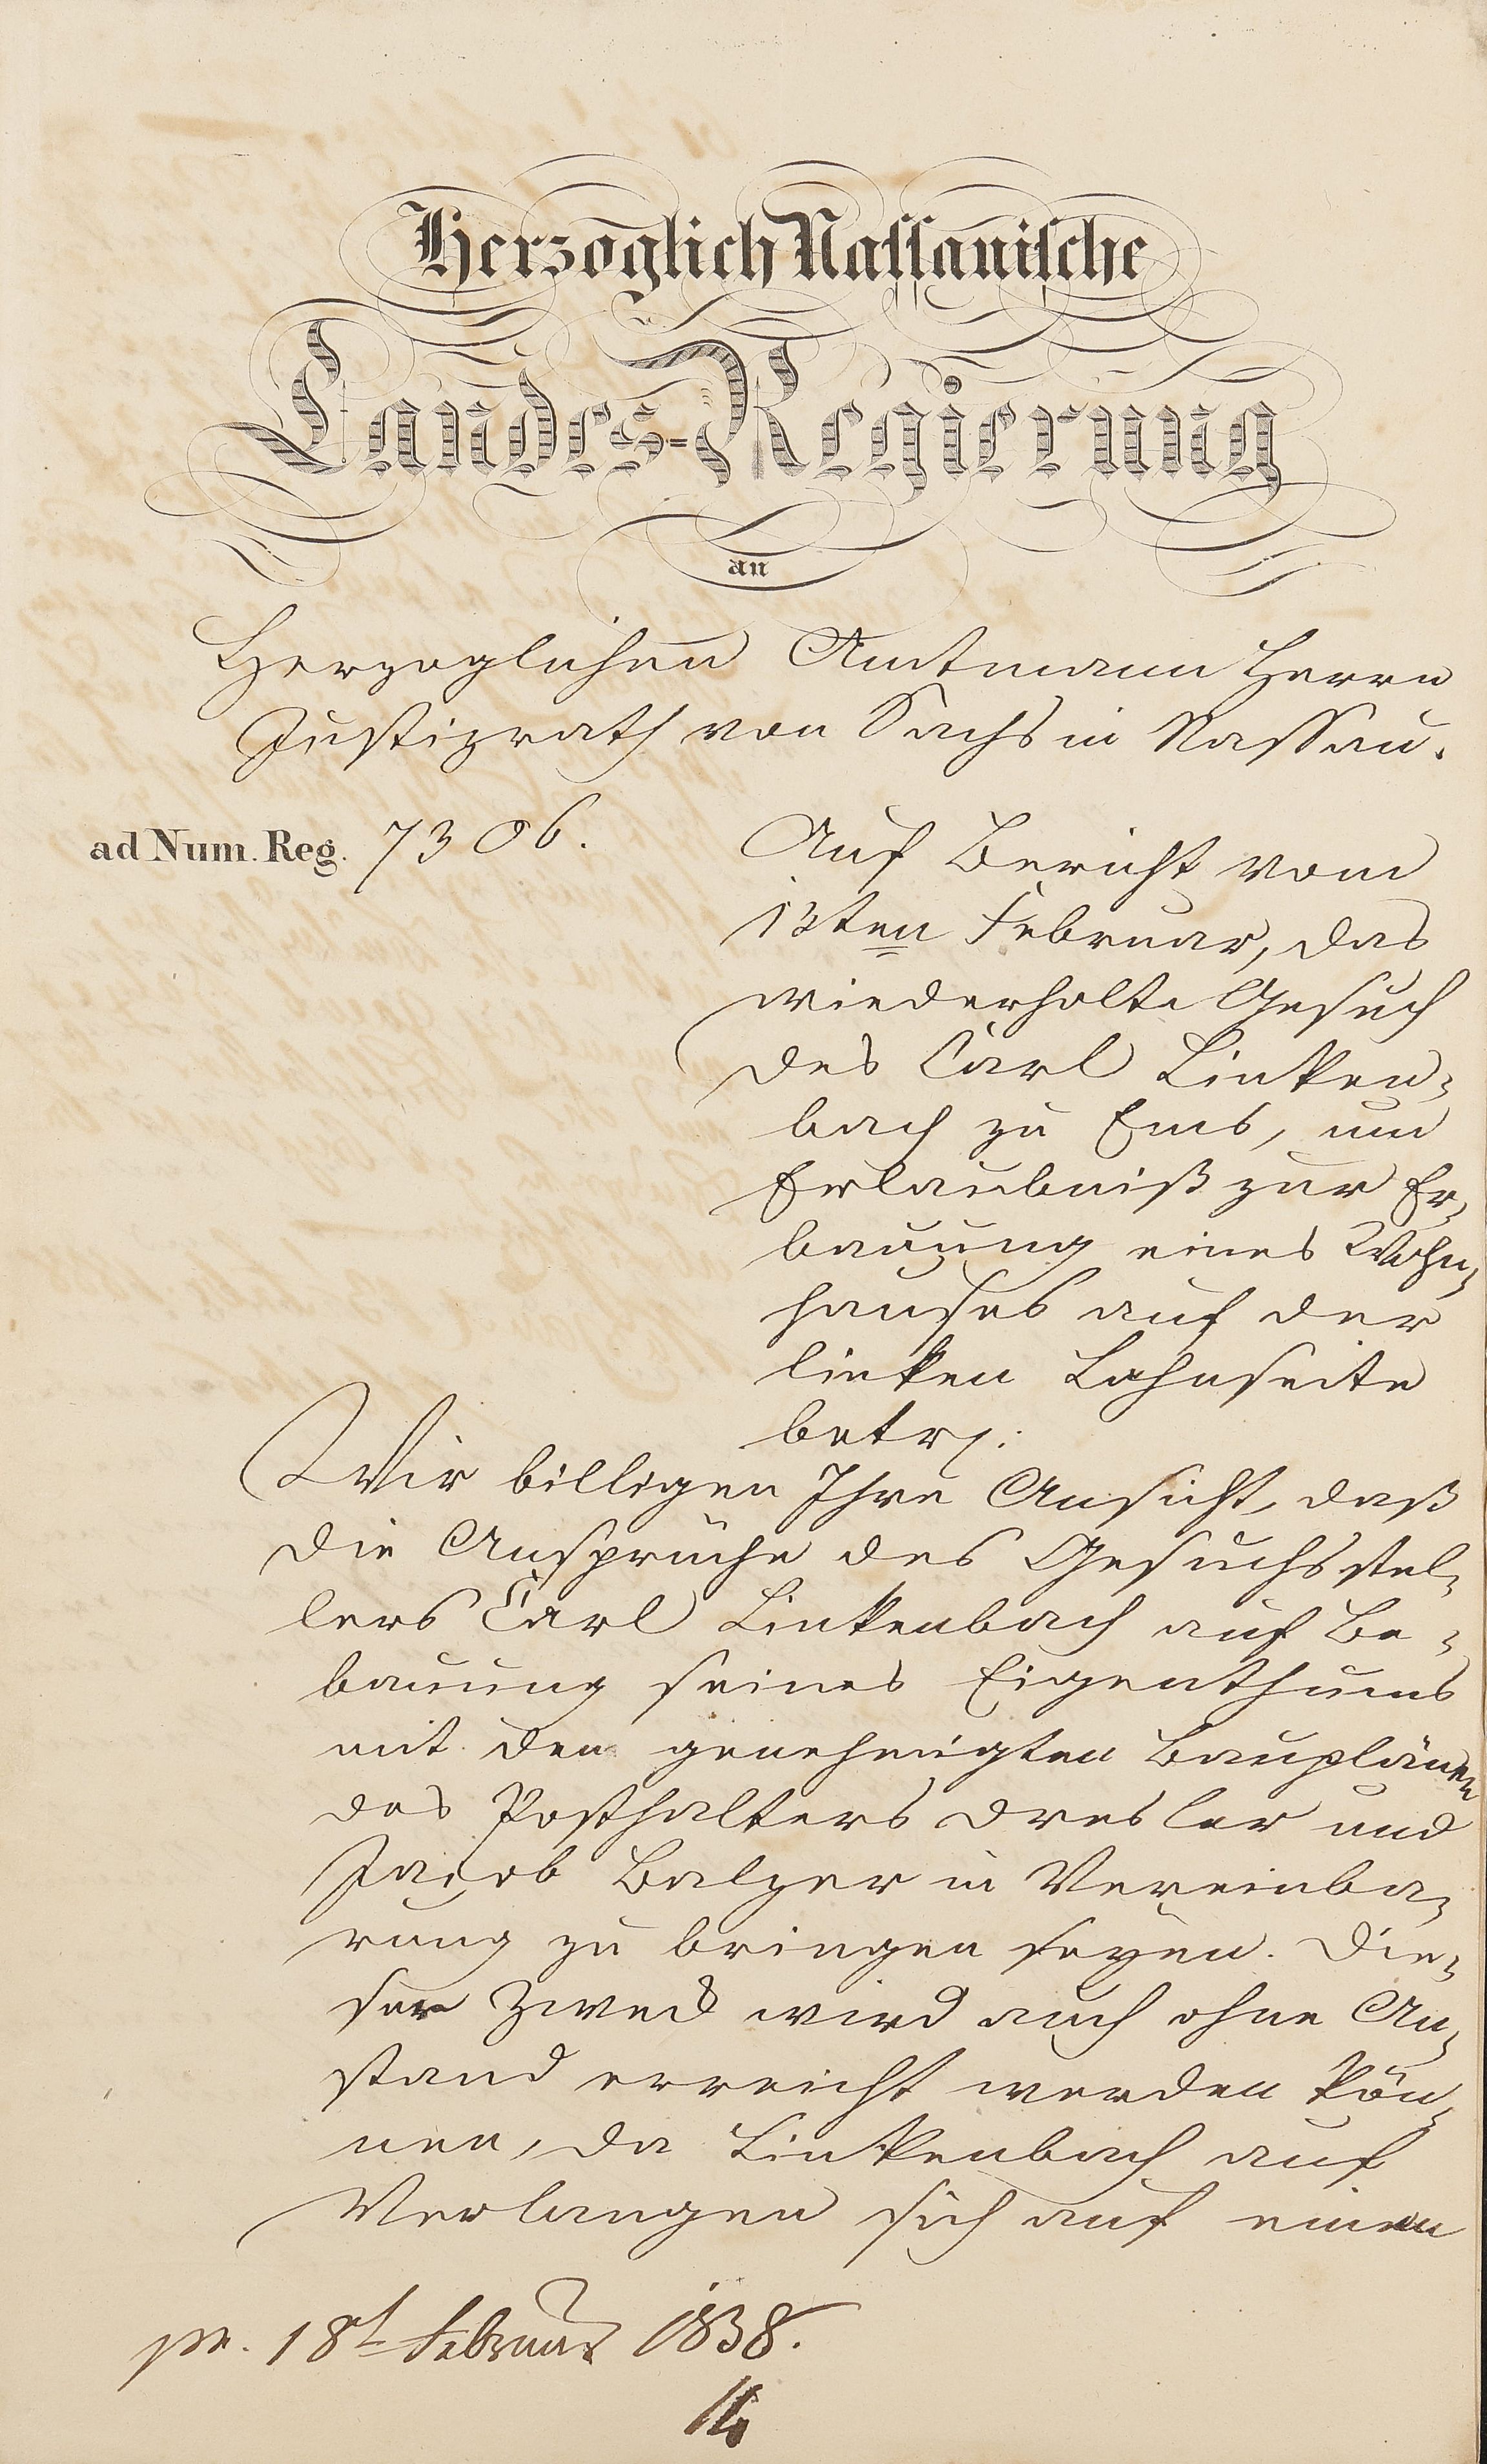 Herzoglich Nassauische
Landes-Regierung
an
Herzoglichen Amtmann Herrn
Justizrath von Sachs in Nassau.
ad Num. Reg. 7306.
Auf Bericht vom
13ten Februar, das
wiederholte Gesuch
des Carl Linken-
bach zu Ems, um
Erlaubniß zur Er-
bauung eines Wohn-
hauses auf der
linken Lahnseite
betr.
Wir billigen Ihre Ansicht, daß
die Ansprüche des Gesuchsstel-
lers Carl Linkenbach auf Be-
bauung seines Eigenthums
mit den genehmigten Bauplänen
des Posthalters Dresler und
Jacob Balzer in Vereinba-
rung zu bringen seyen. Die-
ser Zweck wird auch ohne An-
stand erreicht werden kön-
nen, da Linkenbach auf
Verlangen sich auf einen
pr. 18t Februar 1838.